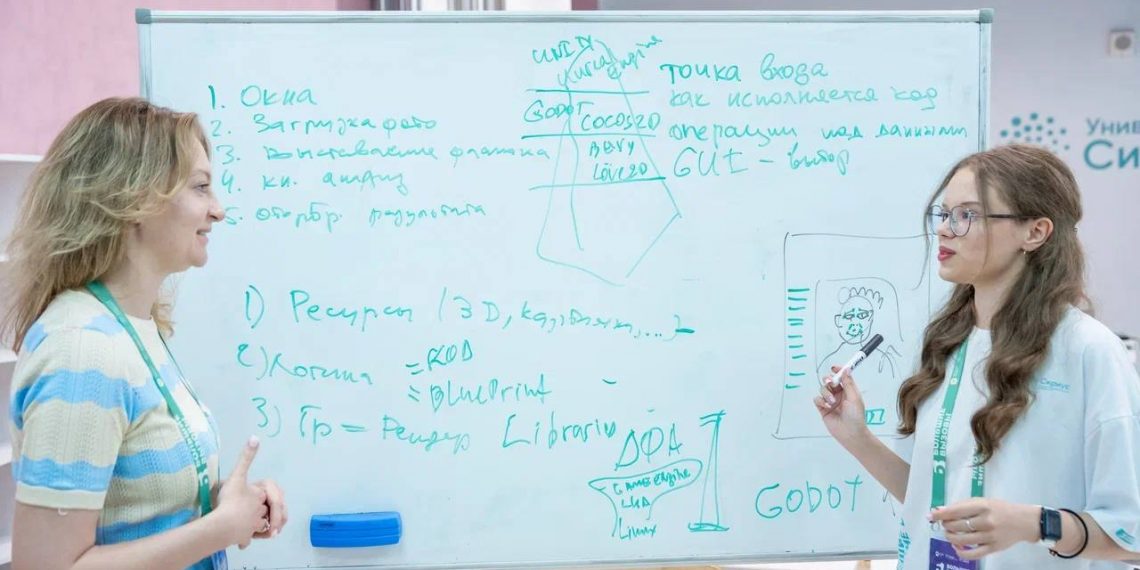 1. Окна
2. Загрузка фото
3. выставление
4. кн.
5. отобр. результата
UNITY
Unreal Engine
GODOT
COCOS2D
BEVY
Love2D
точка входа
как исполняется код
операции над данными
GUI – выбор
1) Ресурсы (3D,
2) Логика = КОД
= BluePrint
3) Гр = Рендер
ДФА
GAME engine
Linux
GODOT
Уни
Си
Сириус